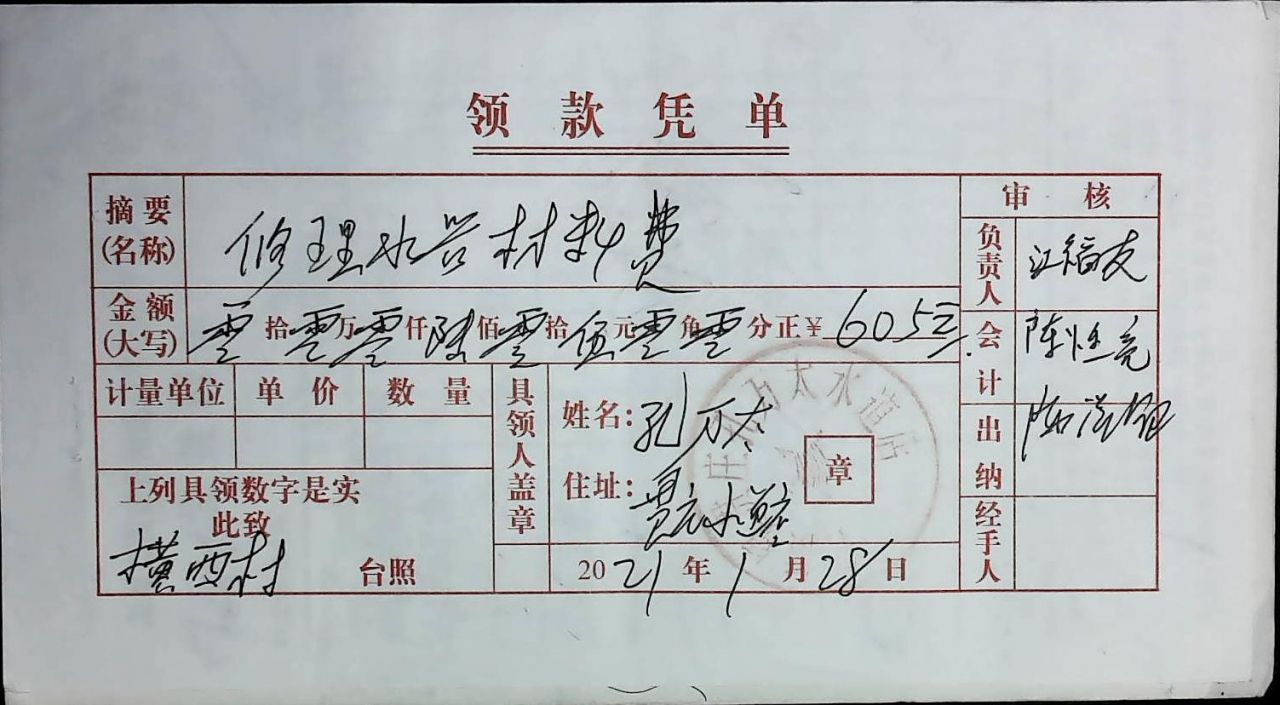 领款凭单
摘要(名称) 修理水管材料费
金额(大写) 零拾零万零仟陆佰零拾伍元零角零分正¥605元
审核
负责人 江福友
会计
出纳
经手人
计量单位 单价 数量
具领人盖章
姓名:孔万太
住址:
章
上列具领数字是实
此致
横西村 台照
2021年1月28日